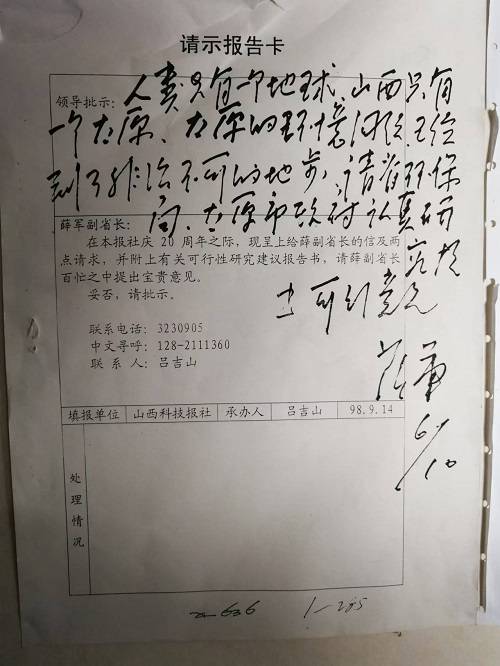 请示报告卡
领导批示：人类只有一个地球，山西只有
一个太原、太原的环境
到了非治不可的地步，请省环保
局、太原市政府认真研
究提
出可行意见
薛军
6/10
薛军副省长：
在本报社庆 20 周年之际，现呈上给薛副省长的信及两
点请求，并附上有关可行性研究建议报告书，请薛副省长
百忙之中提出宝贵意见。
妥否，请批示。
联系电话：3230905
中文寻呼：128-2111360
联 系 人：吕吉山
填报单位 山西科技报社 承办人 吕吉山 98.9.14
处理情况
636 1-285